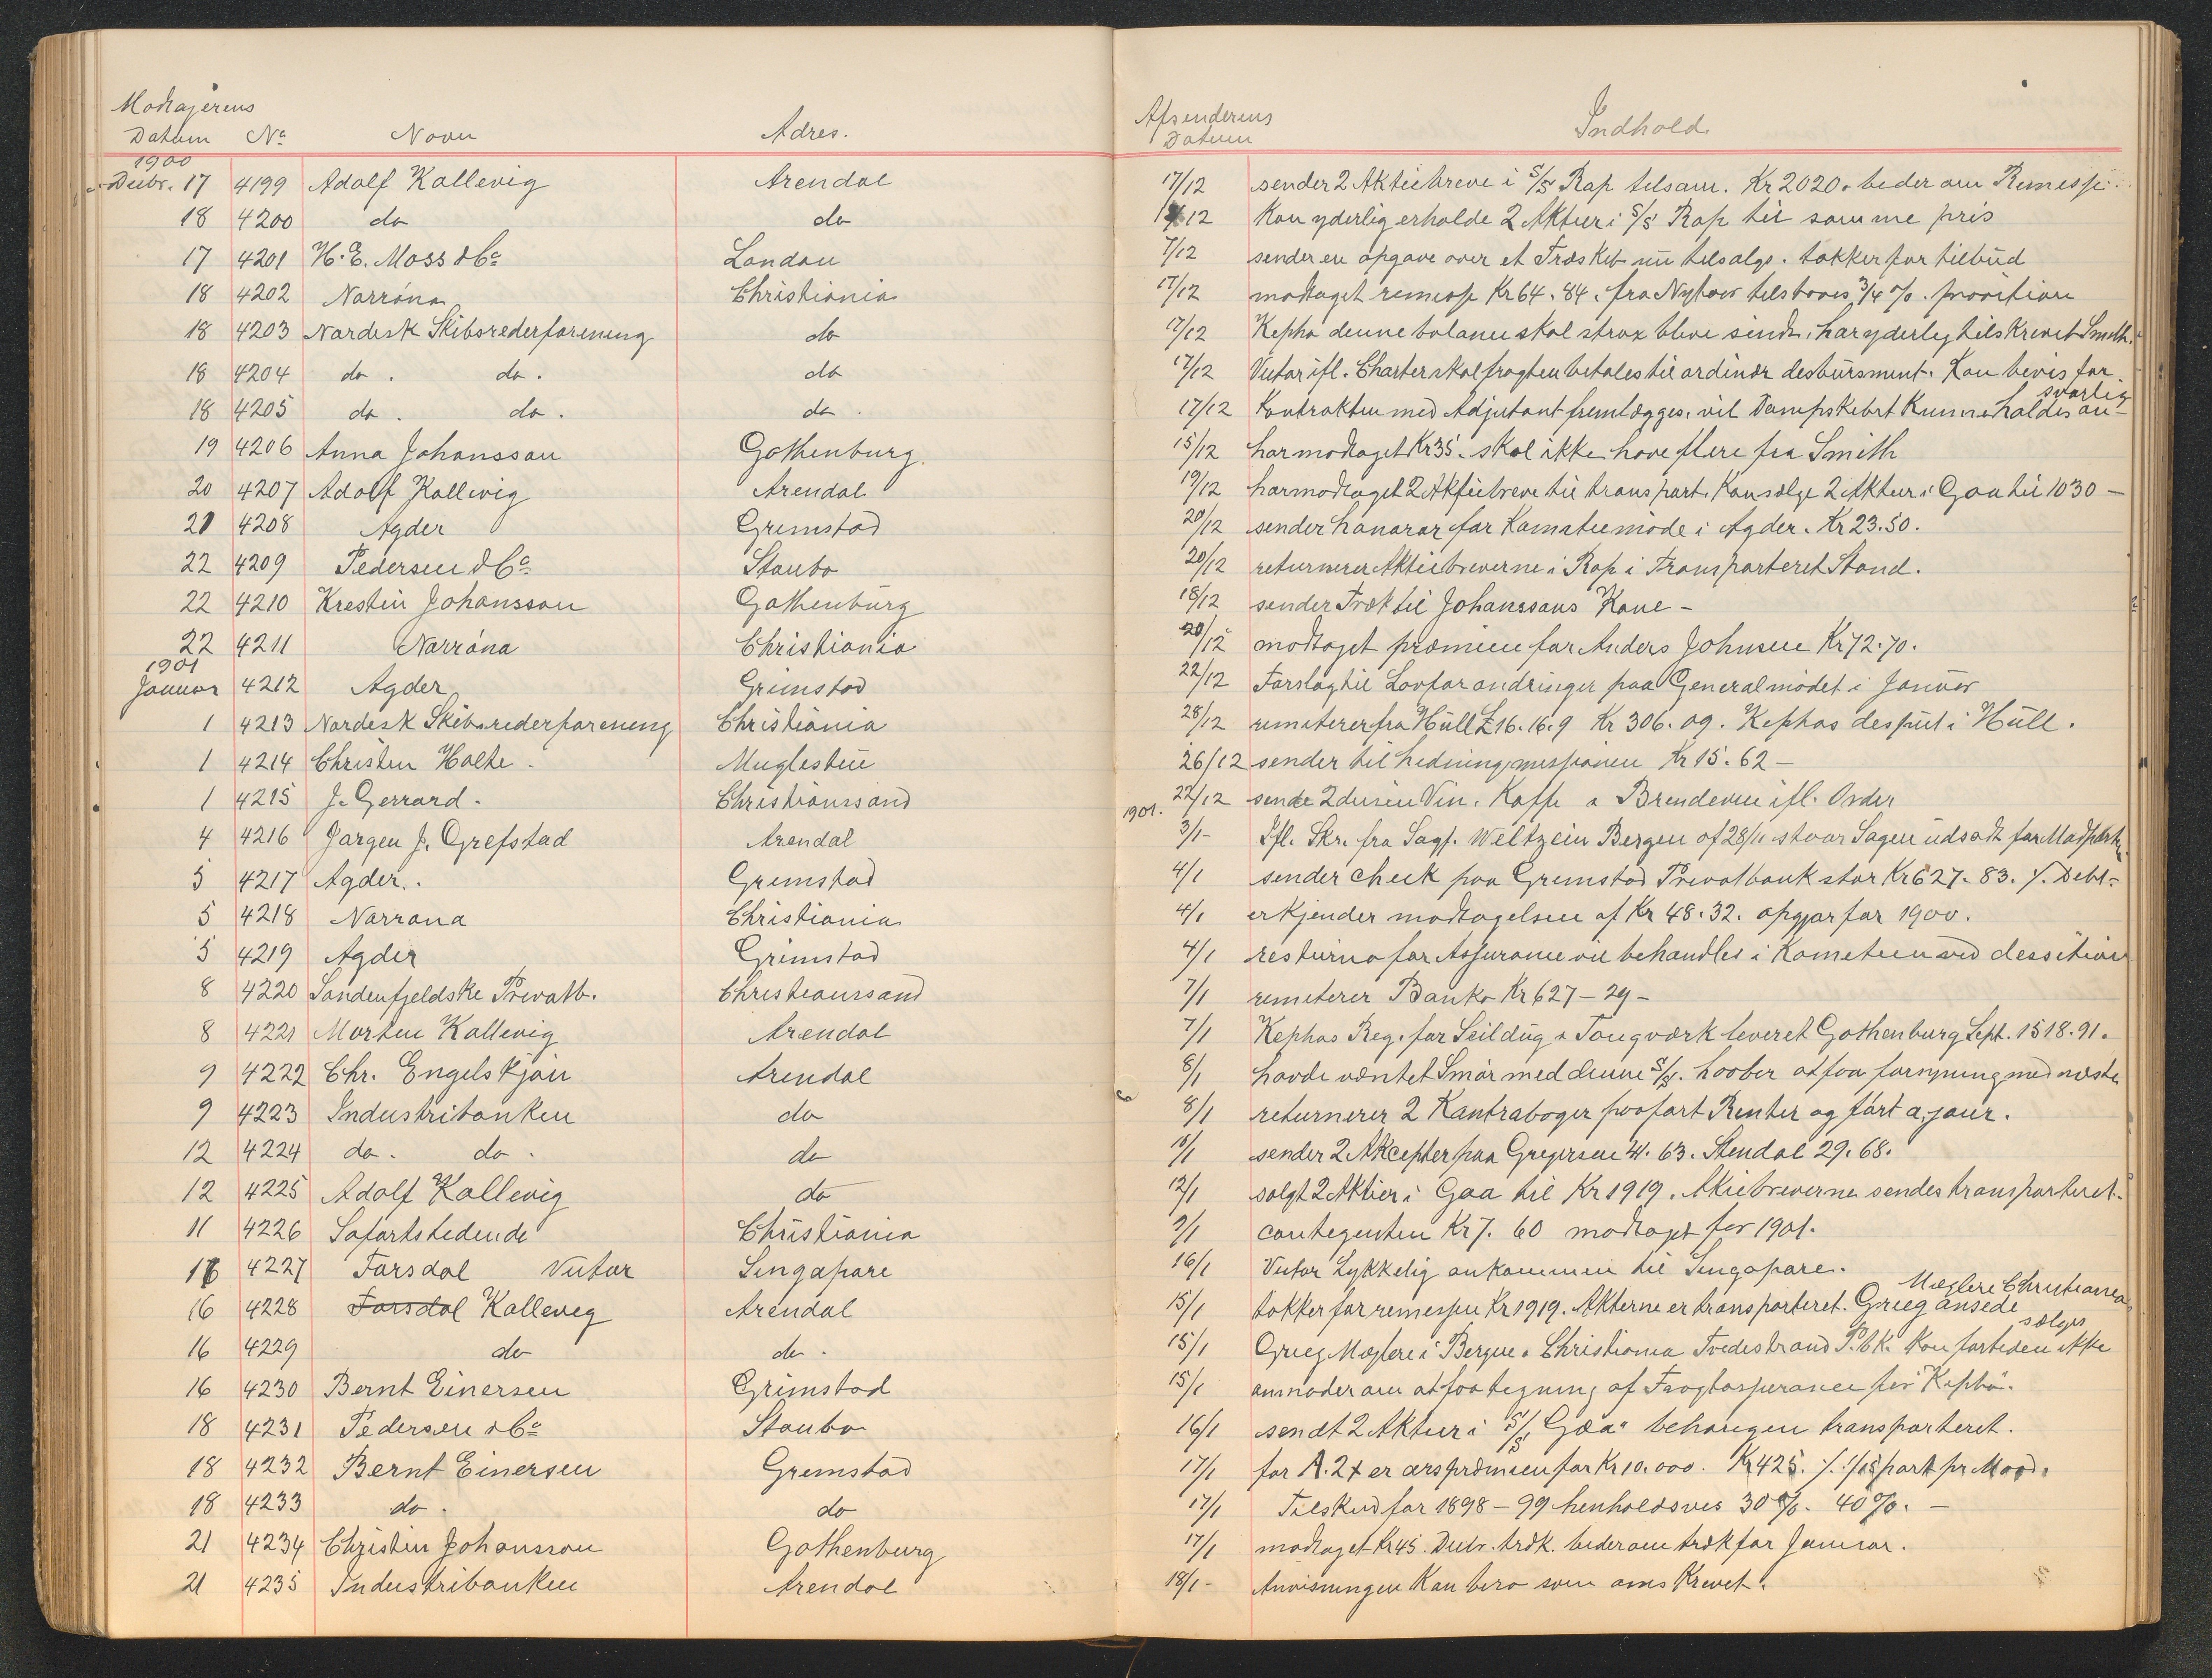 Modtagerens
Datum No Navn Adres.
Afsenderens
Datum
Indhold.
1900
Decbr. 17 4199 Adolf Kallevig Arendal 17/12 sender 2 Aktiebreve i S/S Rap tilsam. Kr 2020. beder om Remesse.
18 4200 do do 12 Kan yderlig erholde 2 Aktier i S/S Rap til samme pris
17 4201 H. E. Moss & Co London 7/12 sender en opgave over et Træskib nu tilsalgs. takker for tilbud
18 4202 Norröna Christiania 17/12 modtaget remesse Kr 64. 84. fra 3/4 %. provition
18 4203 Nordisk Skibsrederforening do 17/12 Kepha denne balance skal strax blive sendt, har yderlig tilskrevet Smith.
18 4204 do. do. do 17/12 Victor ifl. Charter skal fragten betales til ordinær desbursment. Kan bevis for
18 4205 do. do. do. 17/12 Kontrakten med Adjutant fremlægges, vil Dampskibet kunne holdes an-
svarlig
19 4206 Anna Johansson Gothenburg. 15/12 har modtaget Kr 35. skal ikke have flere fra Smith
20 4207 Adolf Kallevig Arendal 19/12 har modtaget 2 Aktiebreve til transport. Kan sælge 2 Aktier i Gaa til 1030 -
21 4208 Agder Grimstad 20/12 sender honorar for Komiteemöde i Agder. Kr 23.50.
22 4209 Pedersen & Co Staubo 20/12 returnerer Aktiebreverne i Rap i Transporteret Stand.
22 4210 Kristin Johansson Gothenburg 18/12 sender Træk til Johanssons Kone -
22 4211 Norröna Christiania 20/12 modtaget præmien for Anders Johnsen Kr 72.70.
1901
Januar 4212 Agder Grimstad 22/12 Forslag til Lovforandringer paa Generalmödet i Januar
1 4213 Nordisk Skibsrederforening Christiania 28/12 remiterer fra Hull £ 16. 16. 9 Kr 306. 09. Kephas disput i Hull.
1 4214 Christen Holte. Muglestue 26/12 sender til hedningmissionen Kr 15. 62 -
1 4215 J. Gerrard. Christianssand 22/12 sende 2 dusin Vin. Kaffe & Brendevin ifl. Order
1901.
4 4216 Jørgen J. Grefstad Arendal 3/1- Ifl. Skr. fra Sagf. Weltzein Bergen af 28/11 Sagen udsadt for Modpart
5 4217 Agder. Grimstad 4/1 sender Check paa Grimstad Privatbank stor Kr 627. 83. %. Debt-
5 4218 Norröna Christiania 4/1 erkjender modtagelsen af Kr 48. 32. opgjør for 1900.
5 4219 Agder Grimstad 4/1 resturno for Assurance vil behandles i Kometeen
8 4220 Söndenfjeldske Privatb. Christianssand 7/1 remiterer Banko Kr 627 - 29 -
8 4221 Morten Kallevig Arendal 7/1 Kephas Reg. for Seildug & Tougværk leveret Gothenburg Sept. 1518.91.
9 4222 Chr. Engelskjön Arendal 8/1 havde væntet Smör med denne S/S. haaber at faa forsyning med næste
9 4223 Industribanken do 8/1 returnerer 2 Kontraboger paafört Renter og fört a jour.
12 4224 do. do. do 10/1 sender 2 Akcepter paa Gregersen 41. 63. Stendal 29. 68.
12 4225 Adolf Kallevig do 12/1 solgt 2 Aktier i Gaa til Kr 1919. Akiebreverne sendes transporteret.
11 4226 Söfartstidende Christiania 9/1 contegenten Kr 7. 60 modtaget for 1901.
16 4227 Forsdal Victor Singapore 16/1 Victor Lykkelig ankommen til Singapore.
16 4228 Forsdal Kallevig Arendal 15/1 takker for remessen Kr 1919. Akterne er transporteret. Grieg ansede
Mæglere Christiania
16 4229 do do. 15/1 Grieg Mæglere i Bergen & Christiania Tvedestrand P.bk. Kan fortiden ikke
sælges
16 4230 Bernt Einersen Grimstad 15/1 anmoder om at faa tegning af Fragtassurance for Kepha.
18 4231 Pedersen & Co Staubo 16/1 sendt 2 Aktier i S/S "Gaa" behörigen transporteret.
18 4232 Bernt Einersen Grimstad 17/1 for A. 2 + er arspræmien for Kr 10.000. Kr 425. %. 1/15 part pr Maad.
18 4233 do. do 17/1 Tilskud for 1898 - 99 henholdsvis 30 %. 40 %. -
21 4234 Christin Johansson Gothenburg 17/1 modtaget Kr 45. Decbr. træk. beder om træk for Januar.
21 4235 Industribanken Arendal 18/1- Anvisningen Kan bero som omskrevet.